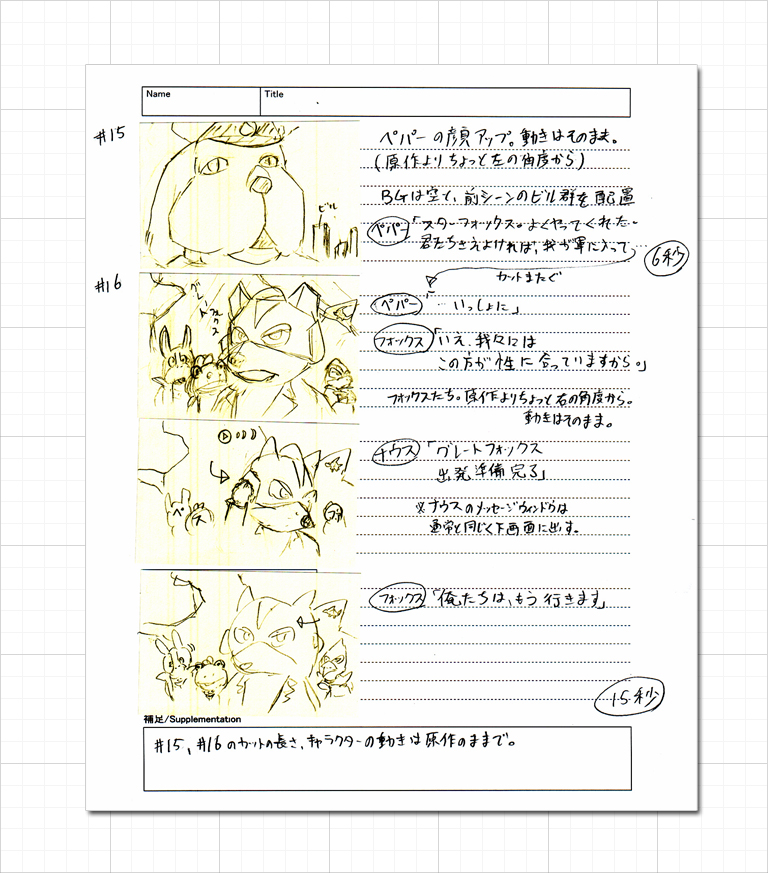 Name
Title
#15
ペパーの顔アップ。動きはそのまま。
(原作よりちょっと左の角度から)
BGは空で、前シーンのビル群を配置
ビル
ペパー「スターフォックス。よくやってくれた。
君たちさえよければ、我が軍に入って
6秒
カットまたぐ
#16
グレートフォックス
ペパー「いっしょに」
フォックス「いえ、我々には
この方が性に合っていますから。」
フォックスたち。原作よりちょっと右の角度から。
動きはそのまま。
ナウス「グレートフォックス
出発準備完了」
※ナウスのメッセージウィンドウは
通常と同じく下画面に出す。
ペ
ス
ファ
フォックス「俺たちは、もう行きます」
15秒
補足/Supplementation
#15、#16のカットの長さ、キャラクターの動きは原作のままで。